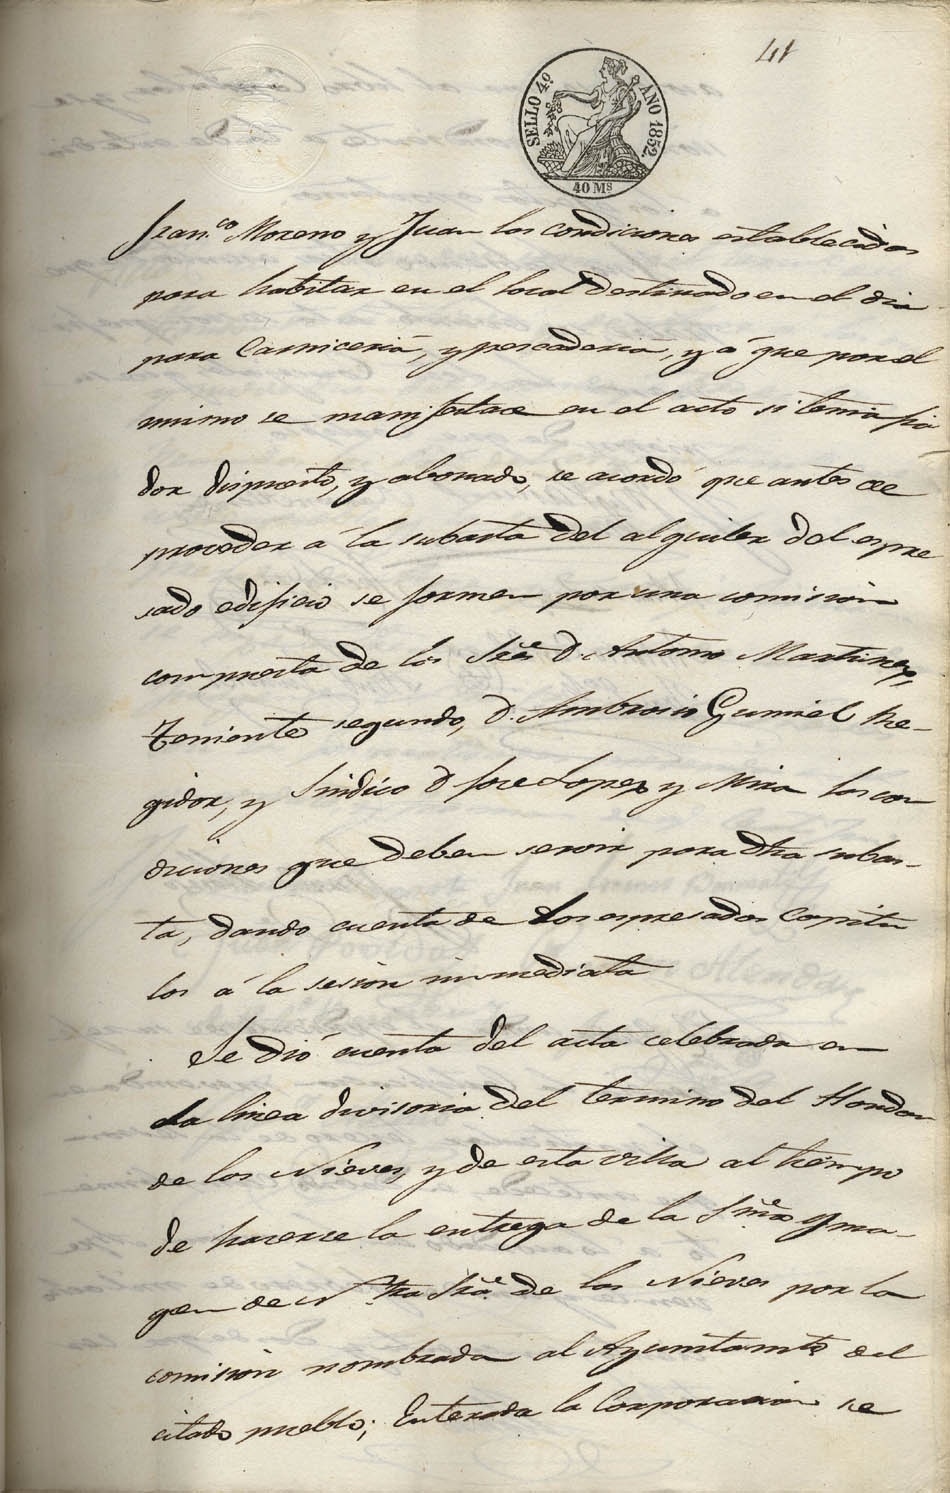 41
SELLO 4º. AÑO 1852.
40 Ms
Fran.co Moreno y Juan las condiciones establecidas
para habitar en el local destinado en el dia
para Carniceria, y pescaderia, y á que por el
mismo se manifestase en el acto si tenia fia
dor dispuesto, y abonado, se acordó que antes de
proceder á la subasta del alquiler del espre
sado edificio se formen por una comision
compuesta de los Sres. D. Antonio Martinez,
Teniente segundo, D. Ambrosio Gumiel Re-
gidor, y Sindico D Jose Lopez y Mira las con
diciones que deben servir para dha subas-
ta, dando cuenta de los espresados Capitu
los á la sesion inmediata
Se dió cuenta del acta celebrada en
la linea divisoria del termino del Hondon
de las Nieves, y de esta villa al tiempo
de hacerse la entrega de la Sma Yma-
gen de Ntra Sra. de las Nieves por la
comision nombrada al Ayuntamto del
citado pueblo; Enterada la Corporacion se